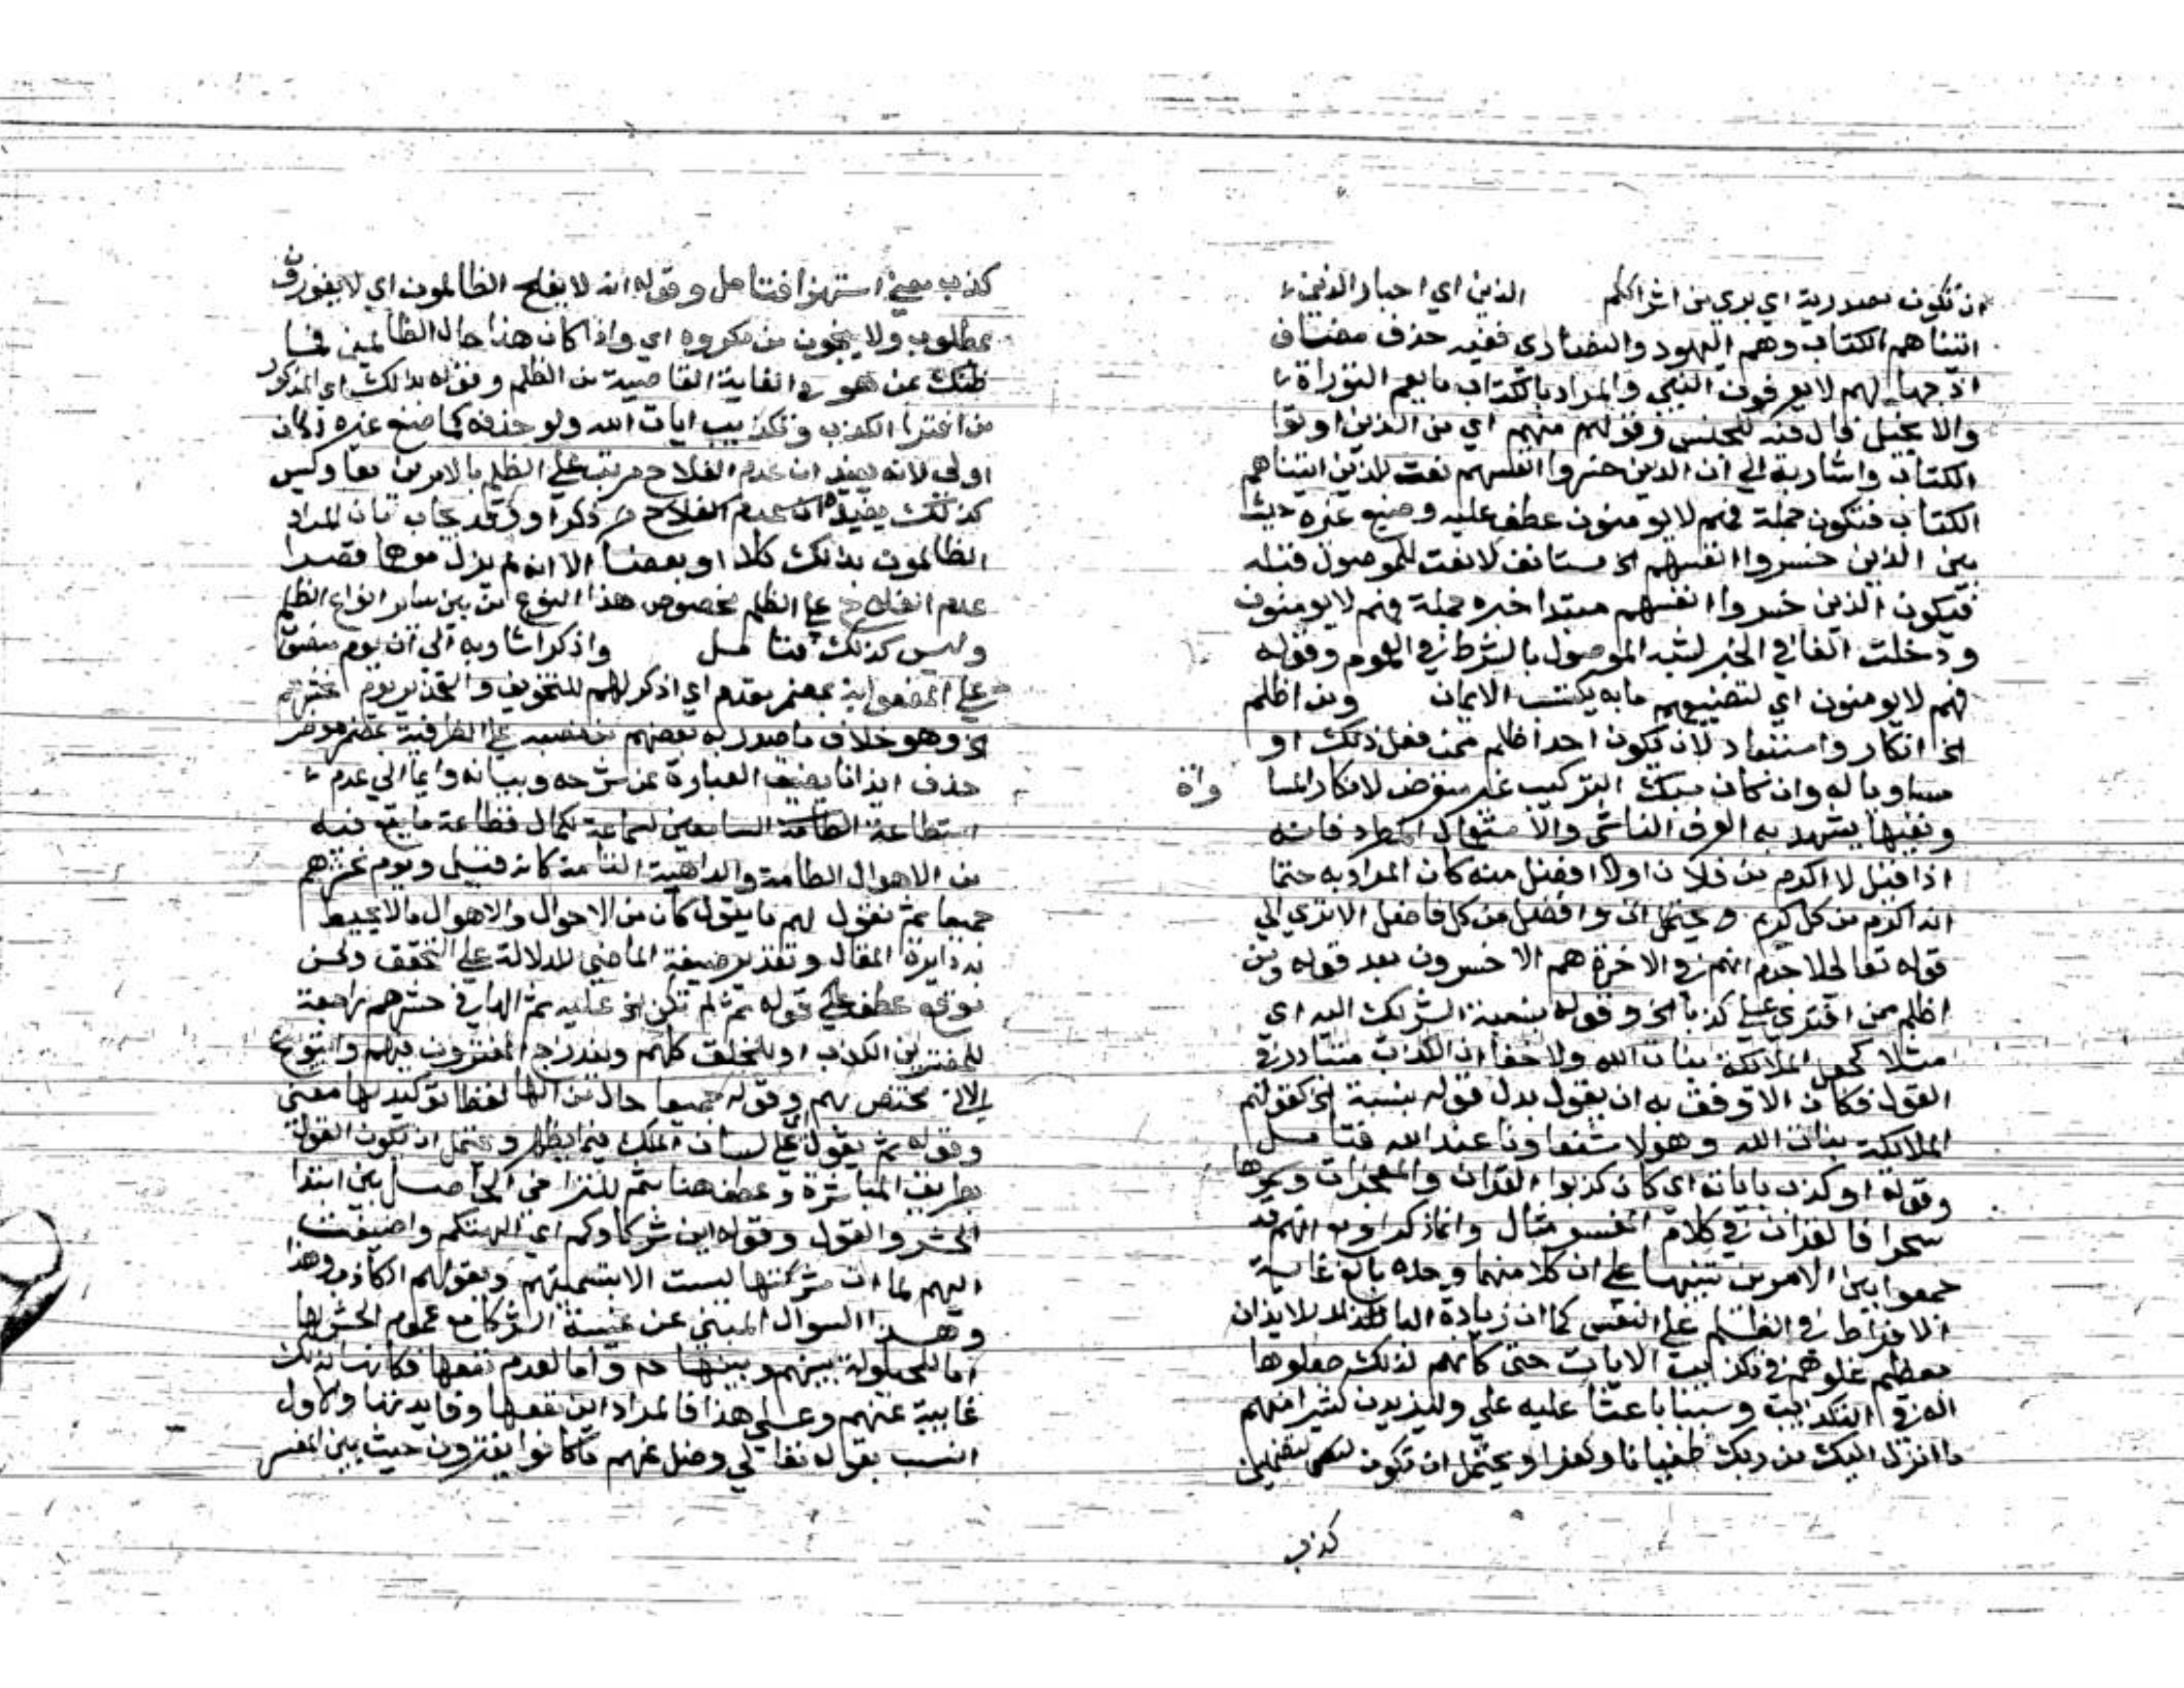 ان تكون مصدرية اي بري من اشراككم الذين اي احبار الذين
اتيناهم الكتاب وهم اليهود والنصاري ففيه حذف مضاف
اذ جهالهم لا يعرفون النبي والمراد بالكتاب ما يعم التوراة
والانجيل فال فيه للجنس وقولهم منهم اي من الذين اوتوا
الكتاب واشار به الي ان الذين خسروا انفسهم نعت للذين اتيناهم
الكتاب فتكون جملة فهم لا يومنون عطف عليه وصنيع غيره حيث
بين الذين خسروا انفسهم الخ مستانف لا نعت للموصول قبله
فيكون الذين خسروا انفسهم مبتدا خبره جملة فهم لا يومنون
ودخلت الفا في الخبر لشبه الموصول بالشرط في العموم وقوله
فهم لا يومنون اي لتضييعهم ما به يكتسب الايمان ومن اظلم
الخ انكار واستبعاد لان يكون احد اظلم ممن فعل ذلك او
مساويا له وان كان سبك التركيب غير متعرض لانكار المسا واة
ونفيها يشهد به العرف الفاشي والاستعمال المطرد فانه
اذا قيل لا اكرم من فلان اولا افضل منه كان المراد به حتما
انه اكرم من كل كريم وافضل من كل فاضل الا تري الي
قوله تعالي لا جرم انهم في الاخرة هم الاخسرون بعد قوله ومن
اظلم ممن افتري علي كذبا الخ وقوله بنسبة الشريك اليه اي
مثلا كجعل الملائكة بنات الله ولا خفا ان الكذب متبادر في
القول فكان الاوفق به ان يقول بدل قوله بنسبة الخ كقولهم
الملائكة بنات الله وهولا شفعاونا عند الله فتامل
وقوله او كذب باياته اي كان كذبوا القران والمعجزات وسموها
سحرا فالقران في كلام المفسر مثال وانما ذكر او وهم قد
جمعوا بين الامرين تنبيها علي ان كلا منهما وحده بالغ غاية
الافراط في الظلم علي النفس كما ان زيادة البا للايذان
بعظم غلوهم في تكذيب الايات حتي كانهم لذلك جعلوها
الة في التكذيب وسببا باعثا عليه علي وليزيدن كثيرا منهم
ما انزل اليك من ربك طغيانا وكفرا ويحتمل ان تكون لتضمين
كذب
كذب معني استهزا فتامل وقوله انه لا يفلح الظالمون اي لا يفوزون
بمطلوب ولا ينجون من مكروه اي واذا كان هذا حال الظالمين فما
ظنك بمن هو في الغاية القاصية من الظلم وقوله بذلك اي المذكور
من افترا الكذب وتكذيب ايات الله ولو حذفه كما صنع غيره لكان
اولي لانه يفيد ان عدم الفلاح مرتب علي الظلم بالامرين معا وليس
كذلك يفيد ان عدم الفلاح وقد يجاب بان المراد
الظالمون بذلك كلا او بعضا الا انه لم يزل موهما قصر
عدم الفلاح علي الظلم بخصوص هذا النوع من بين ساير انواع الظلم
وليس كذلك فتامل واذكر اشار به الي ان يوم منصوب
علي المفعولية بمضمر مقدم اي اذكر لهم للتخويف والتحذير يوم نحشرهم
الخ وهو خلاف ما صدر به بعضهم نصبه علي الظرفية بمضمر موخر
حذف ايذانا بضيق العبارة عن شرحه وبيانه وايما الي عدم
استطاعة السامعين لسماعه لكمال فظاعة ما يقع فيه
من الاهوال الطامة والداهية التامة كانه قيل ويوم نحشرهم
جميعا ثم نقول لهم ما نقول كان من الاحوال والاهوال ما لا يحيط
به دايرة المقال وتقدير صيغة الماضي للدلالة علي التحقق ولحسن
موقع عطف علي قوله ثم لم تكن الخ عليه ثم الها في حشرهم راجعة
للمفترين الكذب او للخلق كلهم ويندرج المفترون فيهم والتوبيخ
الاتي مختص بهم وقوله جميعا حال من الها لفظا توكيد لها معني
وقوله ثم يقول علي لسان الملك فيما يظهر ويحتمل ان يكون القول
بطريق المباشرة وعطف هنا بثم للتراخي الحاصل بين ابتدا
الحشر والقول وقوله اين شركاوكم اي الهتكم واضيفت
اليهم لما ان شركتها ليست الا بتسميتهم وبقولهم الكاذب وهذا
وهذا السوال المبني عن غيبة الشركا مع عموم الحشر لها
اما للحيلولة بينهم وبينها ح واما لعدم نفعها فكانها لذلك
غايبة عنهم وعلي هذا فالمراد اين نفعها وفايدتها والاول
انسب بقوله تعالي وضل عنهم ما كانوا يفترون حيث بين المفسر